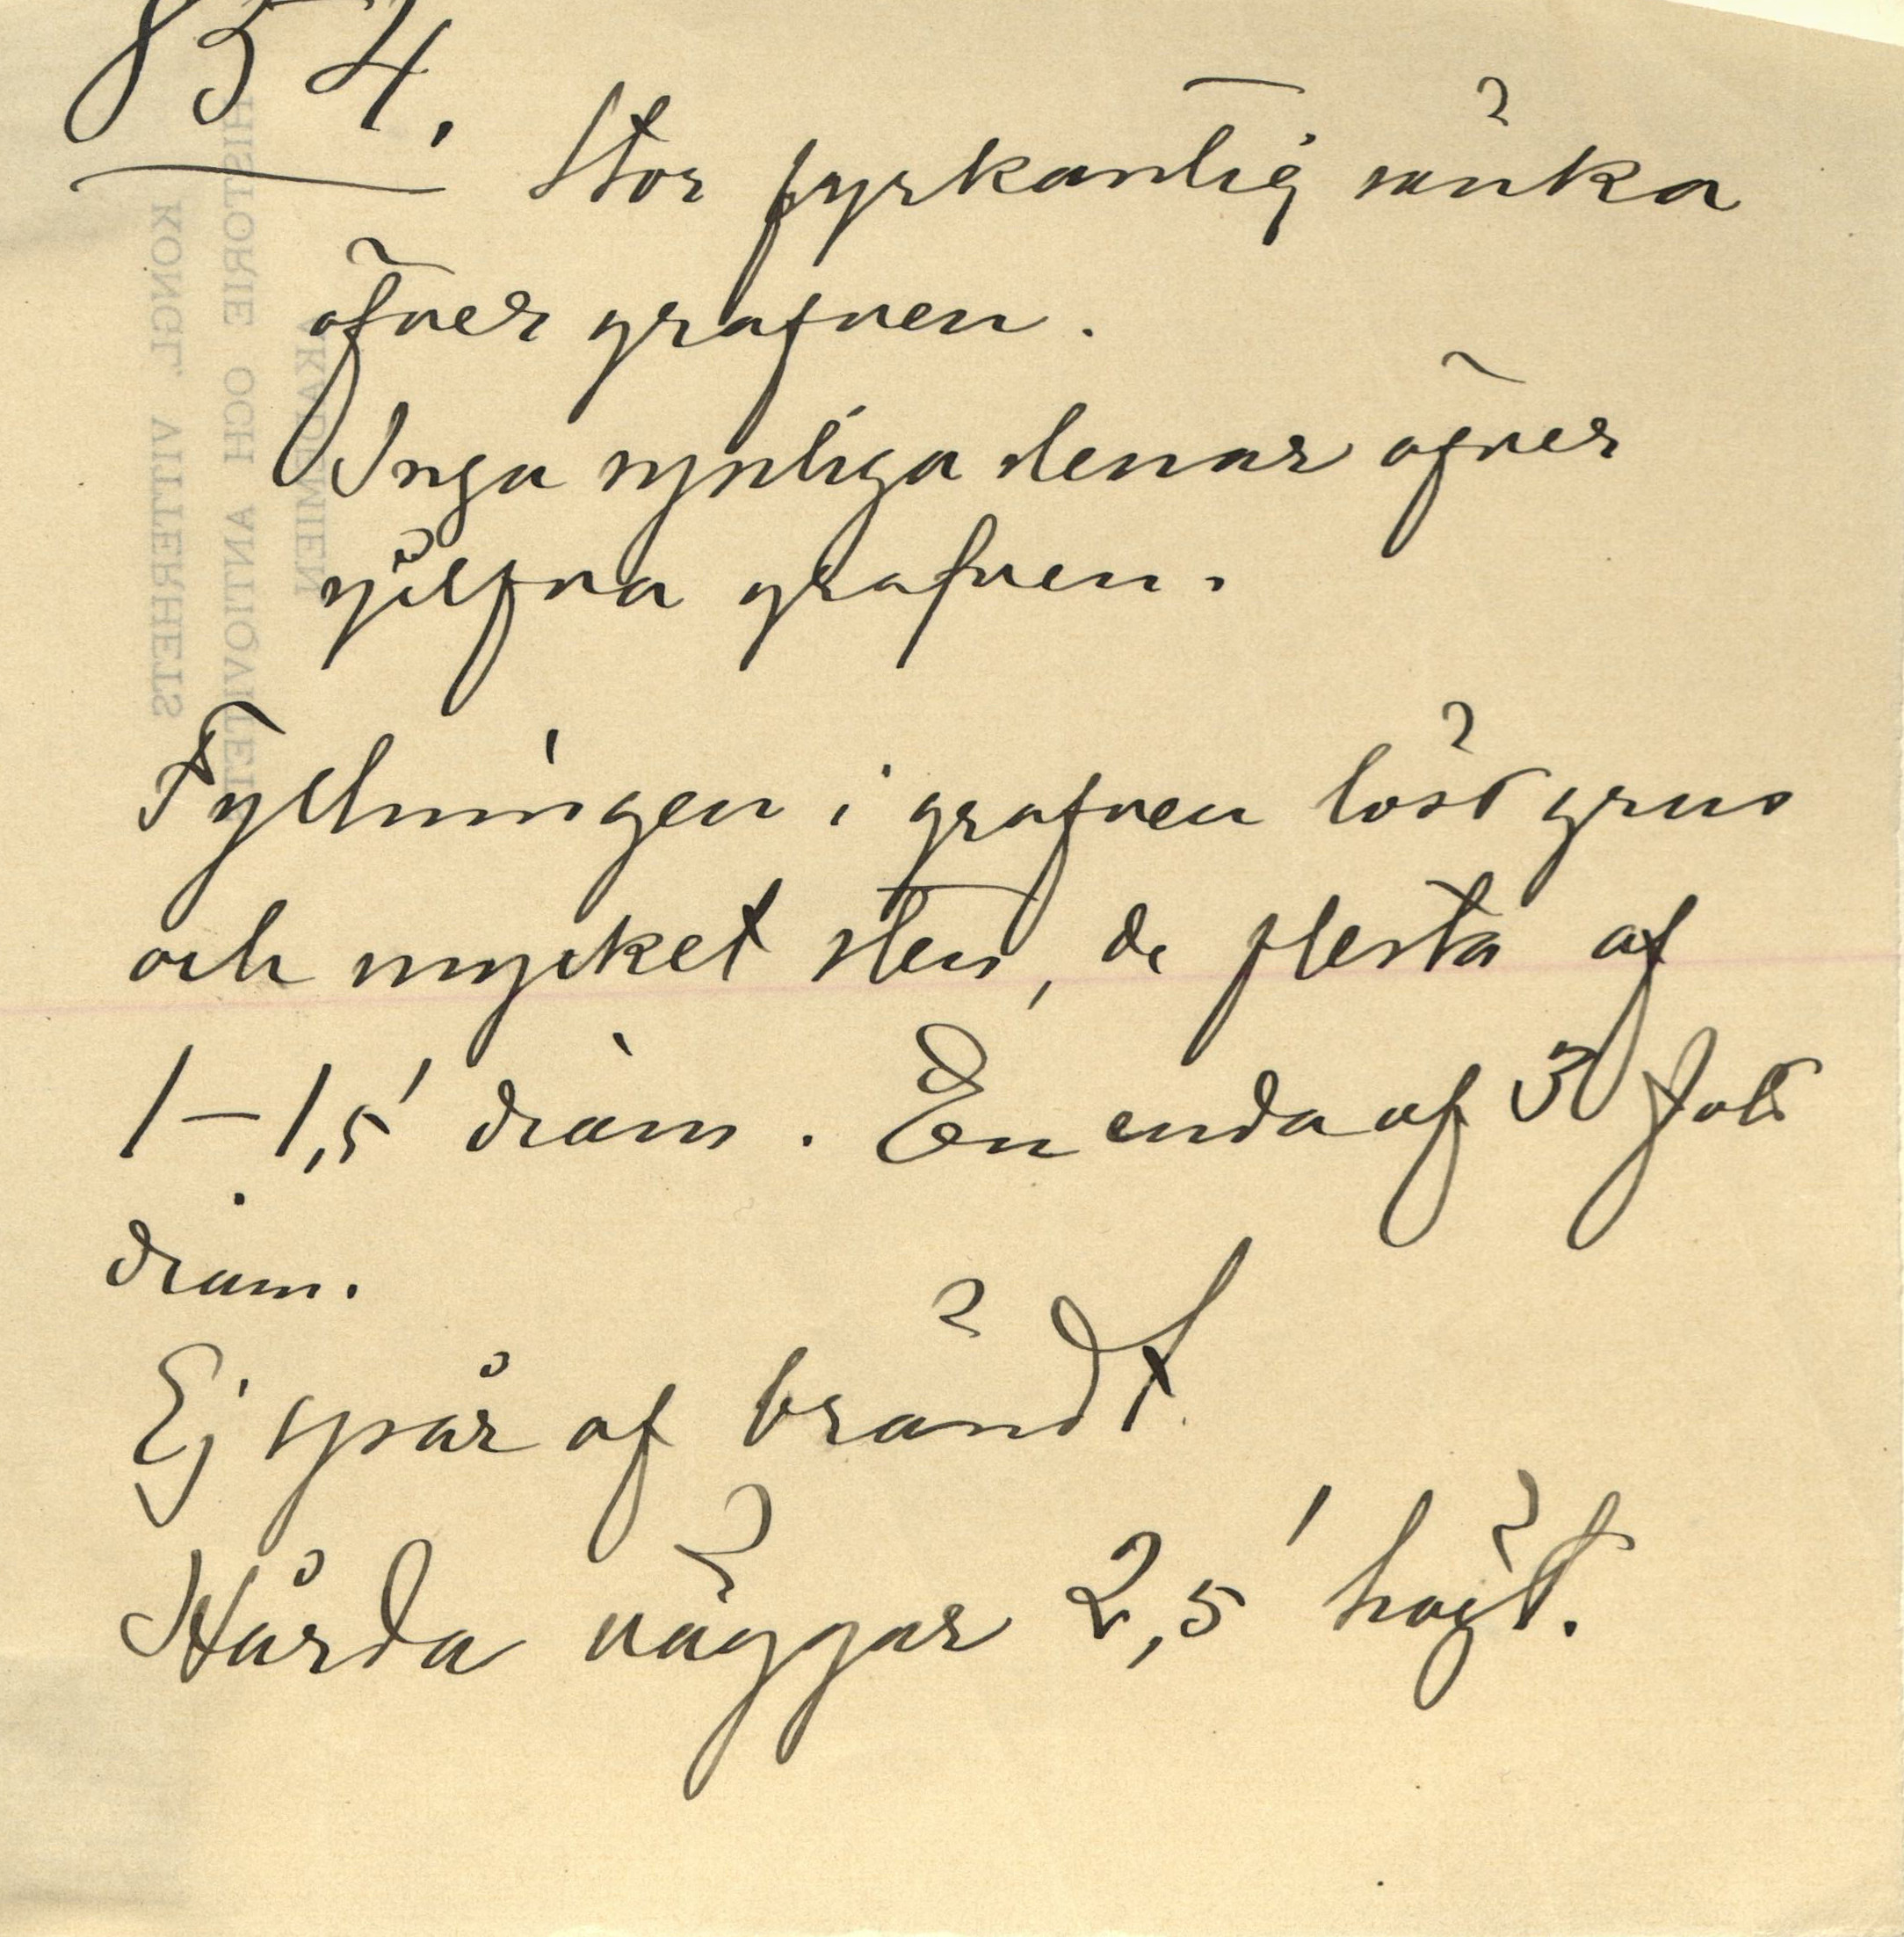 854.
Stor fyrkantig sänka
öfver grafven.
Inga synliga stenar öfver
sjelfva grafven.
Fyllningen i grafven löst grus
och mycket sten, de flesta af
1–1,5' diam. En enda af 3 fots
diam.
Ej spår af brändt
Hårda väggar 2,5' högt.
KONGL. VITTERHETS
HISTORIE OCH ANTIQVITETS
AKADEMIEN